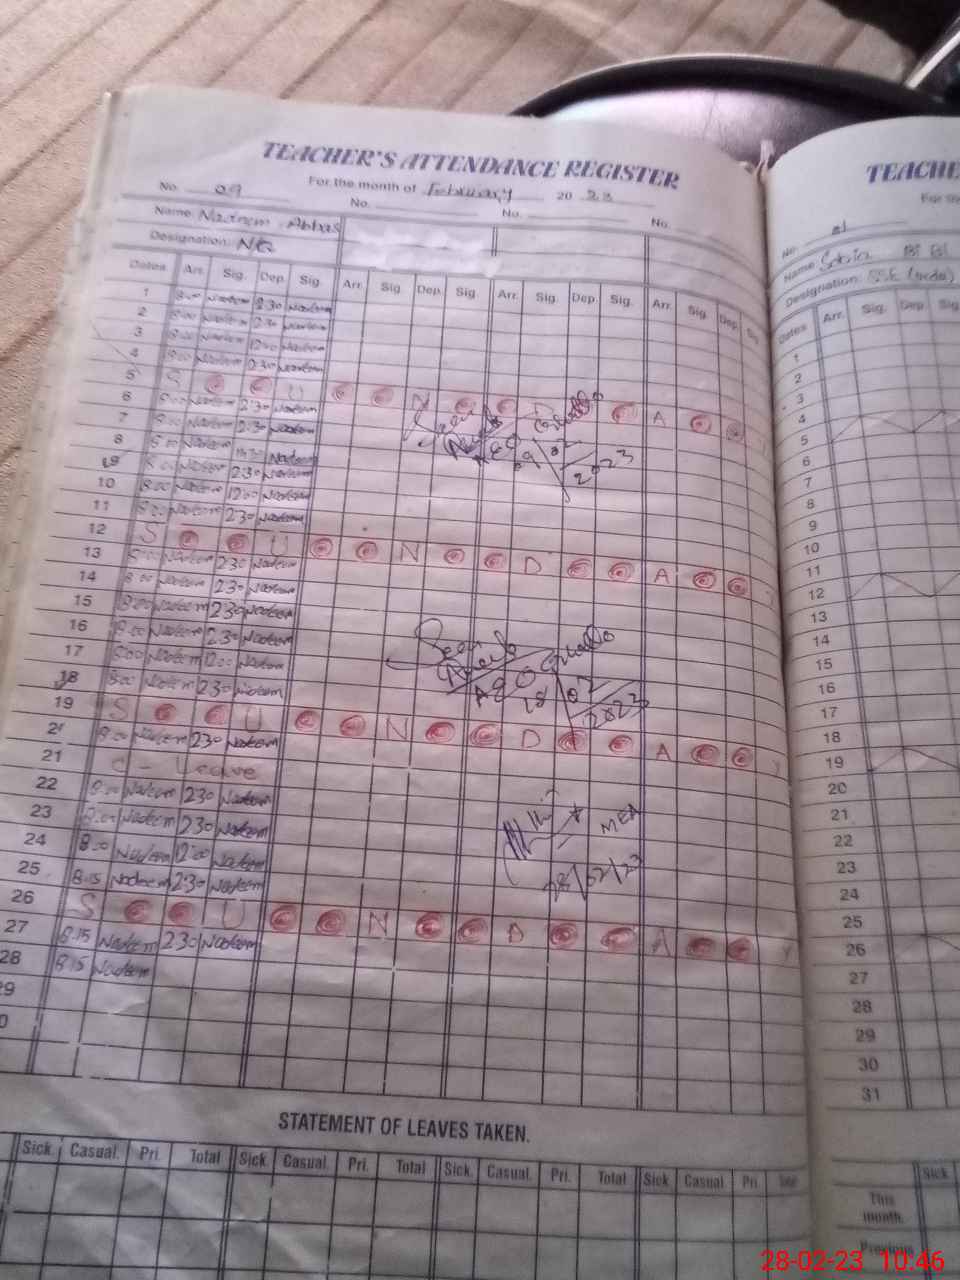 TEACHER'S ATTENDANCE REGISTER
No. 09 For the month of February 20 23
No. No. No.
Name: Nadeem Abbas
Designation: N/Q
Dates Arr. Sig. Dep. Sig. Arr. Sig. Dep. Sig. Arr. Sig. Dep. Sig. Arr. Sig. Dep. Sig.
1 8:00 Nadeem 2:30 Nadeem
2 8:00 Nadeem 2:30 Nadeem
3 8:00 Nadeem 12:00 Nadeem
4 8:00 Nadeem 2:30 Nadeem
5 S U N D A Y
6 8:00 Nadeem 2:30 Nadeem
7 8:00 Nadeem 2:30 Nadeem
8 8:00 Nadeem Nadeem
9 8:00 Nadeem 2:30 Nadeem
10 8:00 Nadeem 12:00 Nadeem
11 8:00 Nadeem 2:30 Nadeem
Seen
AEO
09/02/2023
12 S U N D A
13 8:00 Nadeem 2:30 Nadeem
14 8:00 Nadeem 2:30 Nadeem
15 8:00 Nadeem 2:30 Nadeem
16 8:00 Nadeem 2:30 Nadeem
17 8:00 Nadeem 12:00 Nadeem
18 8:00 Nadeem 2:30 Nadeem
Seen
AEO
18/02/2023
19 S U N D A Y
20 8:00 Nadeem 2:30 Nadeem
21 C - Leave
22 8:00 Nadeem 2:30 Nadeem
23 8:00 Nadeem 2:30 Nadeem
24 8:00 Nadeem 12:00 Nadeem
25 8:15 Nadeem 2:30 Nadeem
MEA
28/02/23
26 S U N D A Y
27 8:15 Nadeem 2:30 Nadeem
28 8:15 Nadeem
29
STATEMENT OF LEAVES TAKEN.
Sick. Casual. Pri. Total Sick. Casual. Pri. Total Sick. Casual. Pri. Total Sick. Casual Pri. Total
TEACHE
For the
No. 01
Name: Sobia Bi Bi
Designation: SSE
Dates Arr. Sig. Dep. Sig
1
2
3
4
5
6
7
8
9
10
11
12
13
14
15
16
17
18
19
20
21
22
23
24
25
26
27
28
29
30
31
Sick
This month.
Previous
28-02-23 10:46